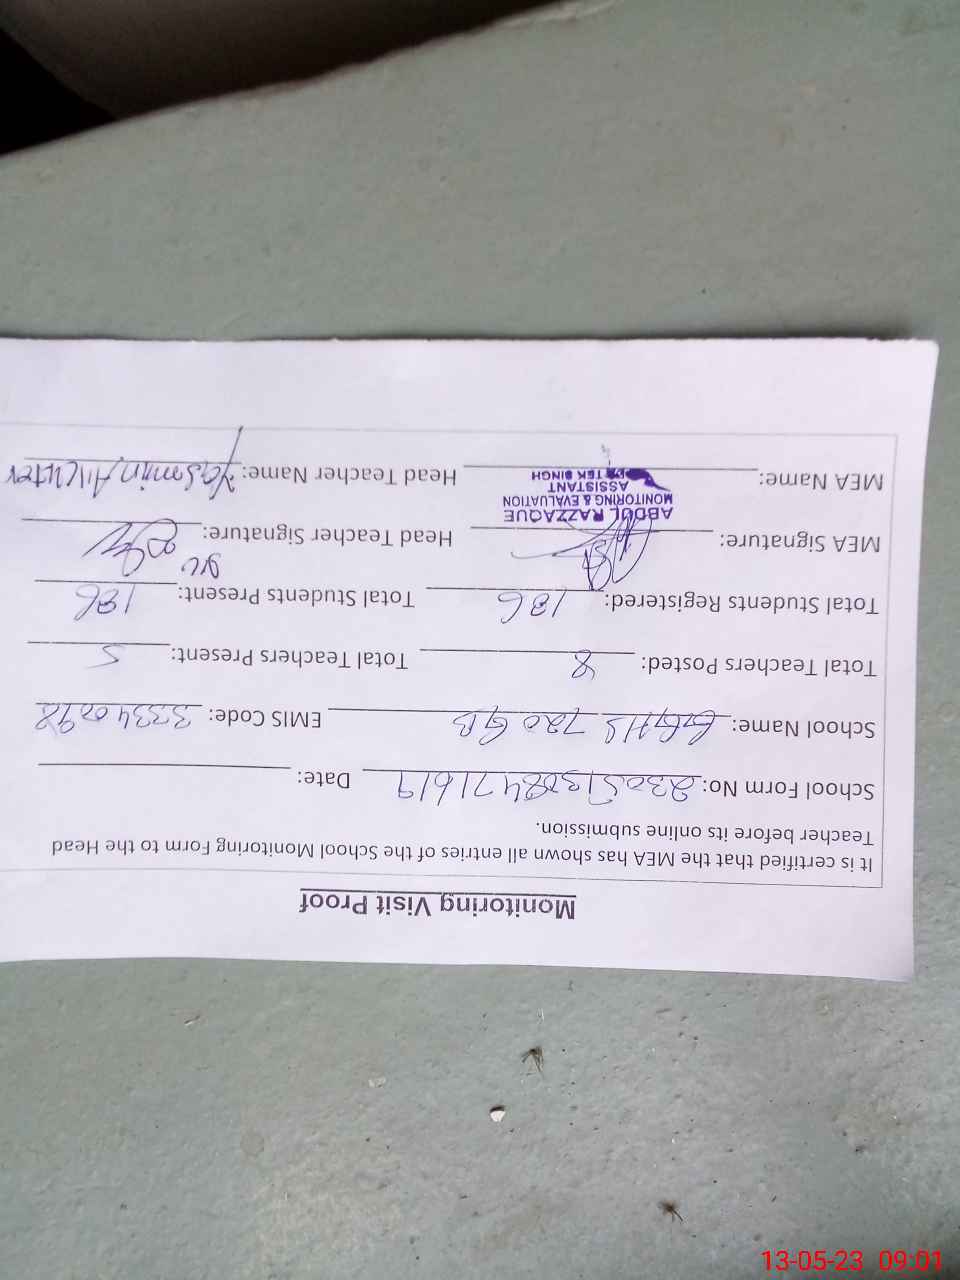 Monitoring Visit Proof
It is certified that the MEA has shown all entries of the School Monitoring Form to the Head
Teacher before its online submission.
School Form No: 23051308471619 Date:
School Name: GGHS 720 GB EMIS Code: 33340298
Total Teachers Posted: 8 Total Teachers Present: 5
Total Students Registered: 186 Total Students Present: 186
MEA Signature: Head Teacher Signature:
ABDUL RAZZAQUE
MONITORING & EVALUATION
ASSISTANT
TEK SINGH
MEA Name: Head Teacher Name: Yasmin Akhter
13-05-23 09:01